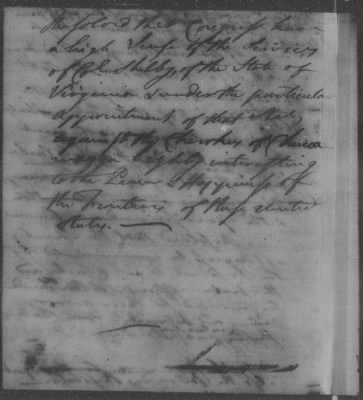 Resolved that Congress have
a high Sense of the Services
of Col. Shelby, of the State of
Virginia & under the particular
appointment of that State,
against the Cherokees of Chicca
mogga highly interesting
to the Peace & Happiness of
the Frontiers of these United
States.